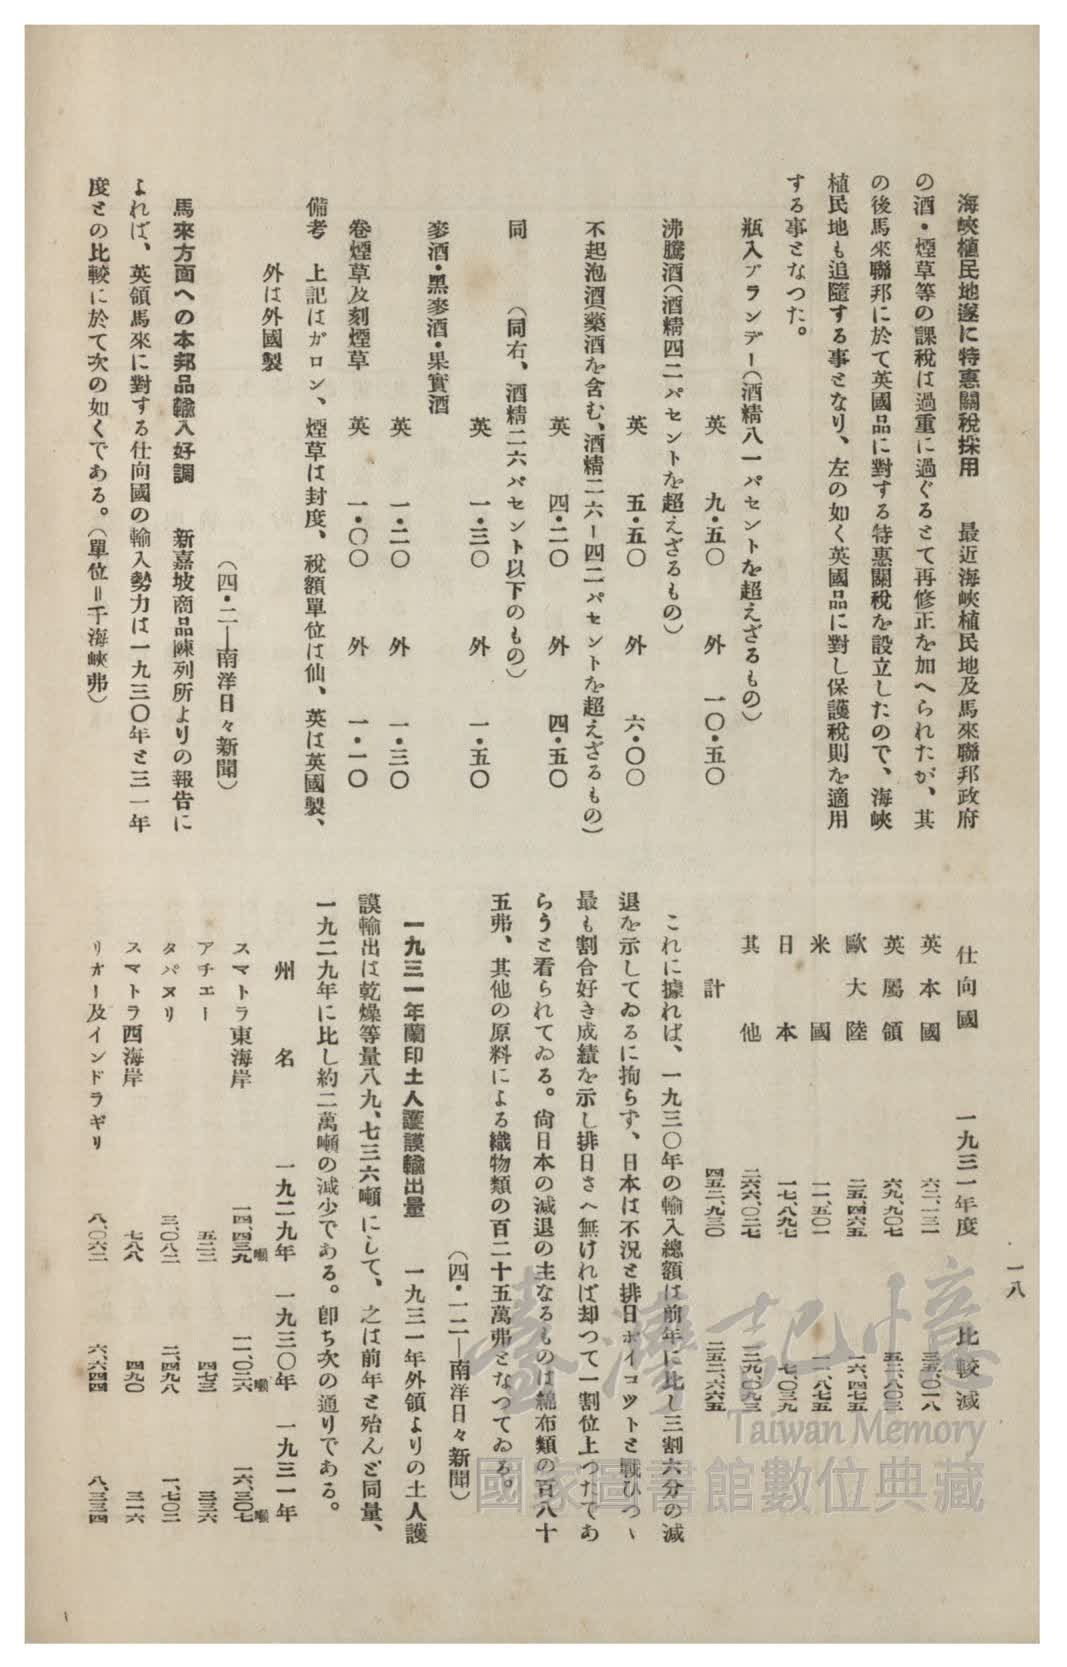 海峽植民地遂に特惠關稅採用　最近海峽植民地及馬來聯邦政府
の酒・煙草等の課稅は過重に過ぐるとて再修正を加へられたが、其
の後馬來聯邦に於て英國品に對する特惠關稅を設立したので、海峽
植民地も追隨する事となり、左の如く英國品に對し保護稅則を適用
する事となつた。
瓶入ブランデー(酒精八一パセントを超えざるもの)
英　九・五〇　外　一〇・五〇
沸騰酒(酒精四二パセントを超えざるもの)
英　五・五〇　外　六・〇〇
不起泡酒(藥酒を含む、酒精二六ー四二パセントを超えざるもの)
英　四・二〇　外　四・五〇
同　(同右、酒精二六パセント以下のもの)
英　一・三〇　外　一・五〇
麥酒・黑麥酒・果實酒
英　一・二〇　外　一・三〇
卷煙草及刻煙草　英　一・〇〇　外　一・一〇
備考　上記はガロン、煙草は封度、稅額單位は仙、英は英國製、
外は外國製
(四・二—南洋日々新聞)
馬來方面への本邦品輸入好調　新嘉坡商品陳列所よりの報告に
よれば、英領馬來に對する仕向國の輸入勢力は一九三〇年と三一年
度との比較に於て次の如くである。(單位＝千海峽弗)
仕向國　一九三一年度　比較減
英本國　六二、一三一　三五、〇一八
英屬領　六九、九〇七　五二、八〇三
歐大陸　二五、四六五　一六、四七五
米國　一一、五〇一　一一、八七五
日本　一七、八九七　七、〇三九
其他　二六六、〇二七　一二九、〇九三
計　四五二、九三〇　二五二、六六五
これに據れば、一九三〇年の輸入總額は前年に比し三割六分の減
退を示してゐるに拘らず、日本は不況と排日ボイコツトと戰ひつゝ
最も割合好き成績を示し排日さへ無ければ却つて一割位上つたであ
らうと看られてゐる。尙日本の減退の主なるものは綿布類の百八十
五弗、其他の原料による織物類の百二十五萬弗となつてゐる。
(四・一二—南洋日々新聞)
一九三一年蘭印土人護謨輸出量　一九三一年外領よりの土人護
謨輸出は乾燥等量八九、七三六噸にして、之は前年と殆んど同量、
一九二九年に比し約二萬噸の減少である。卽ち次の通りである。
州名　一九二九年　一九三〇年　一九三一年
スマトラ東海岸　一四、四三九噸　一一、〇二六噸　一六、三〇七噸
アチエー　五二二　四七三　三三六
タパヌリ　三、〇八二　二、四九八　一、七〇二
スマトラ西海岸　七八八　四九〇　三一六
リオー及インドラギリ　八、〇六二　六、六四四　八、三三四
一八
臺灣記憶
Taiwan Memory
國家圖書館數位典藏